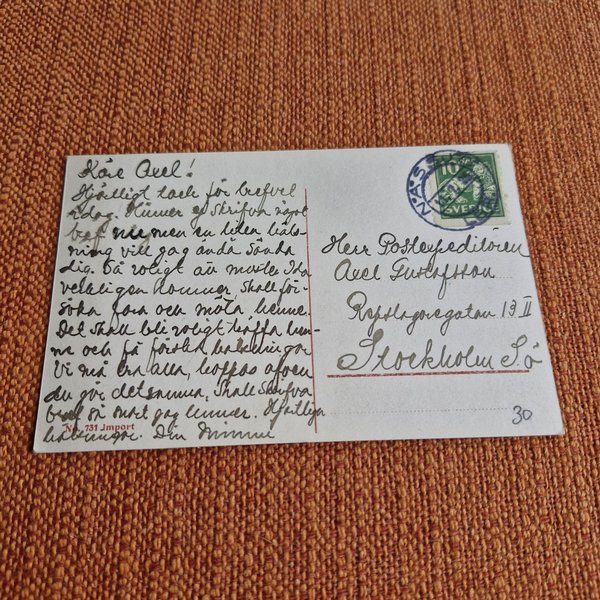 Käre Axel!
Hjärtligt tack för brefvet
idag. Hinner ej skrifva något
bref nu men en liten häls-
ning vill jag ändå sända
dig. Så roligt att moster Ida
verkligen kommer. Skall för-
söka fara och möta henne.
Det skall bli roligt träffa hen-
ne och få färska hälsningar
Vi må bra alla, hoppas äfven
du gör detsamma. Skall skrifva
bref så snart jag hinner. Hjärtliga
hälsningar. Din Mimmi
No. 731 Import
NÄSSJÖ
10
SVERIGE
Herr Postexpeditören
Axel Gustafsson
Repslagaregatan 13 II
Stockholm Sö
30